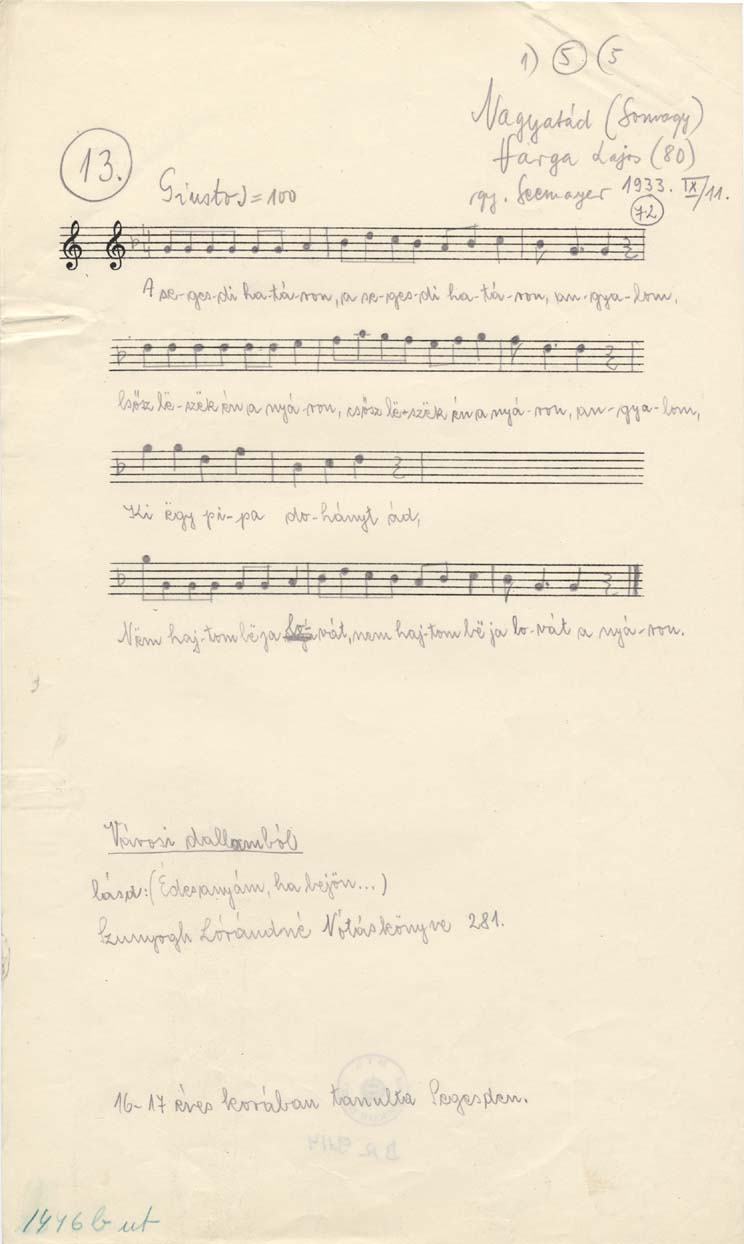 1) 5 (5
Nagyatád (Somogy)
Varga Lajos (80)
gy. Seemayer 1933. IX/11.
72
13.
Giusto ♩=100
A se-ges-di ha-tá-ron, a se-ges-di ha-tá-ron, an-gya-lom,
Csősz lë-szëk én a nyá-ron, csősz lë-szëk én a nyá-ron, an-gya-lom,
Ki ëgy pi-pa do-hányt ád,
Nëm haj-tom bë ja vát, nem haj-tom bë ja lo-vát a nyá-ron.
Városi dallamból
lásd: (Édesanyám, ha bejön...)
Szunyogh Lórándné Nótáskönyve 281.
16-17 éves korában tanulta Segesden.
1446b ut